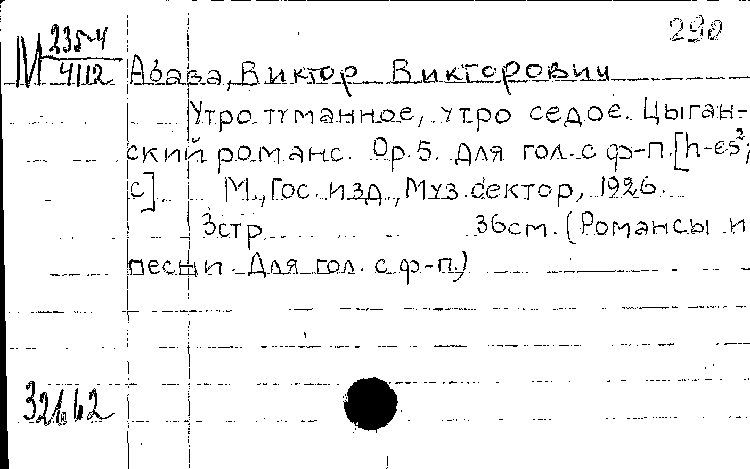 290
М 235-4
4112
Абаза, Виктор Викторович
Утро туманное, утро седое. Цыган-
ский романс. Ор. 5. Для гол. с ф-п. [h-es²;
c]. М., Гос. изд., Муз. сектор, 1926.
3стр 36см. (Романсы и
песни. Для гол. с ф-п.)